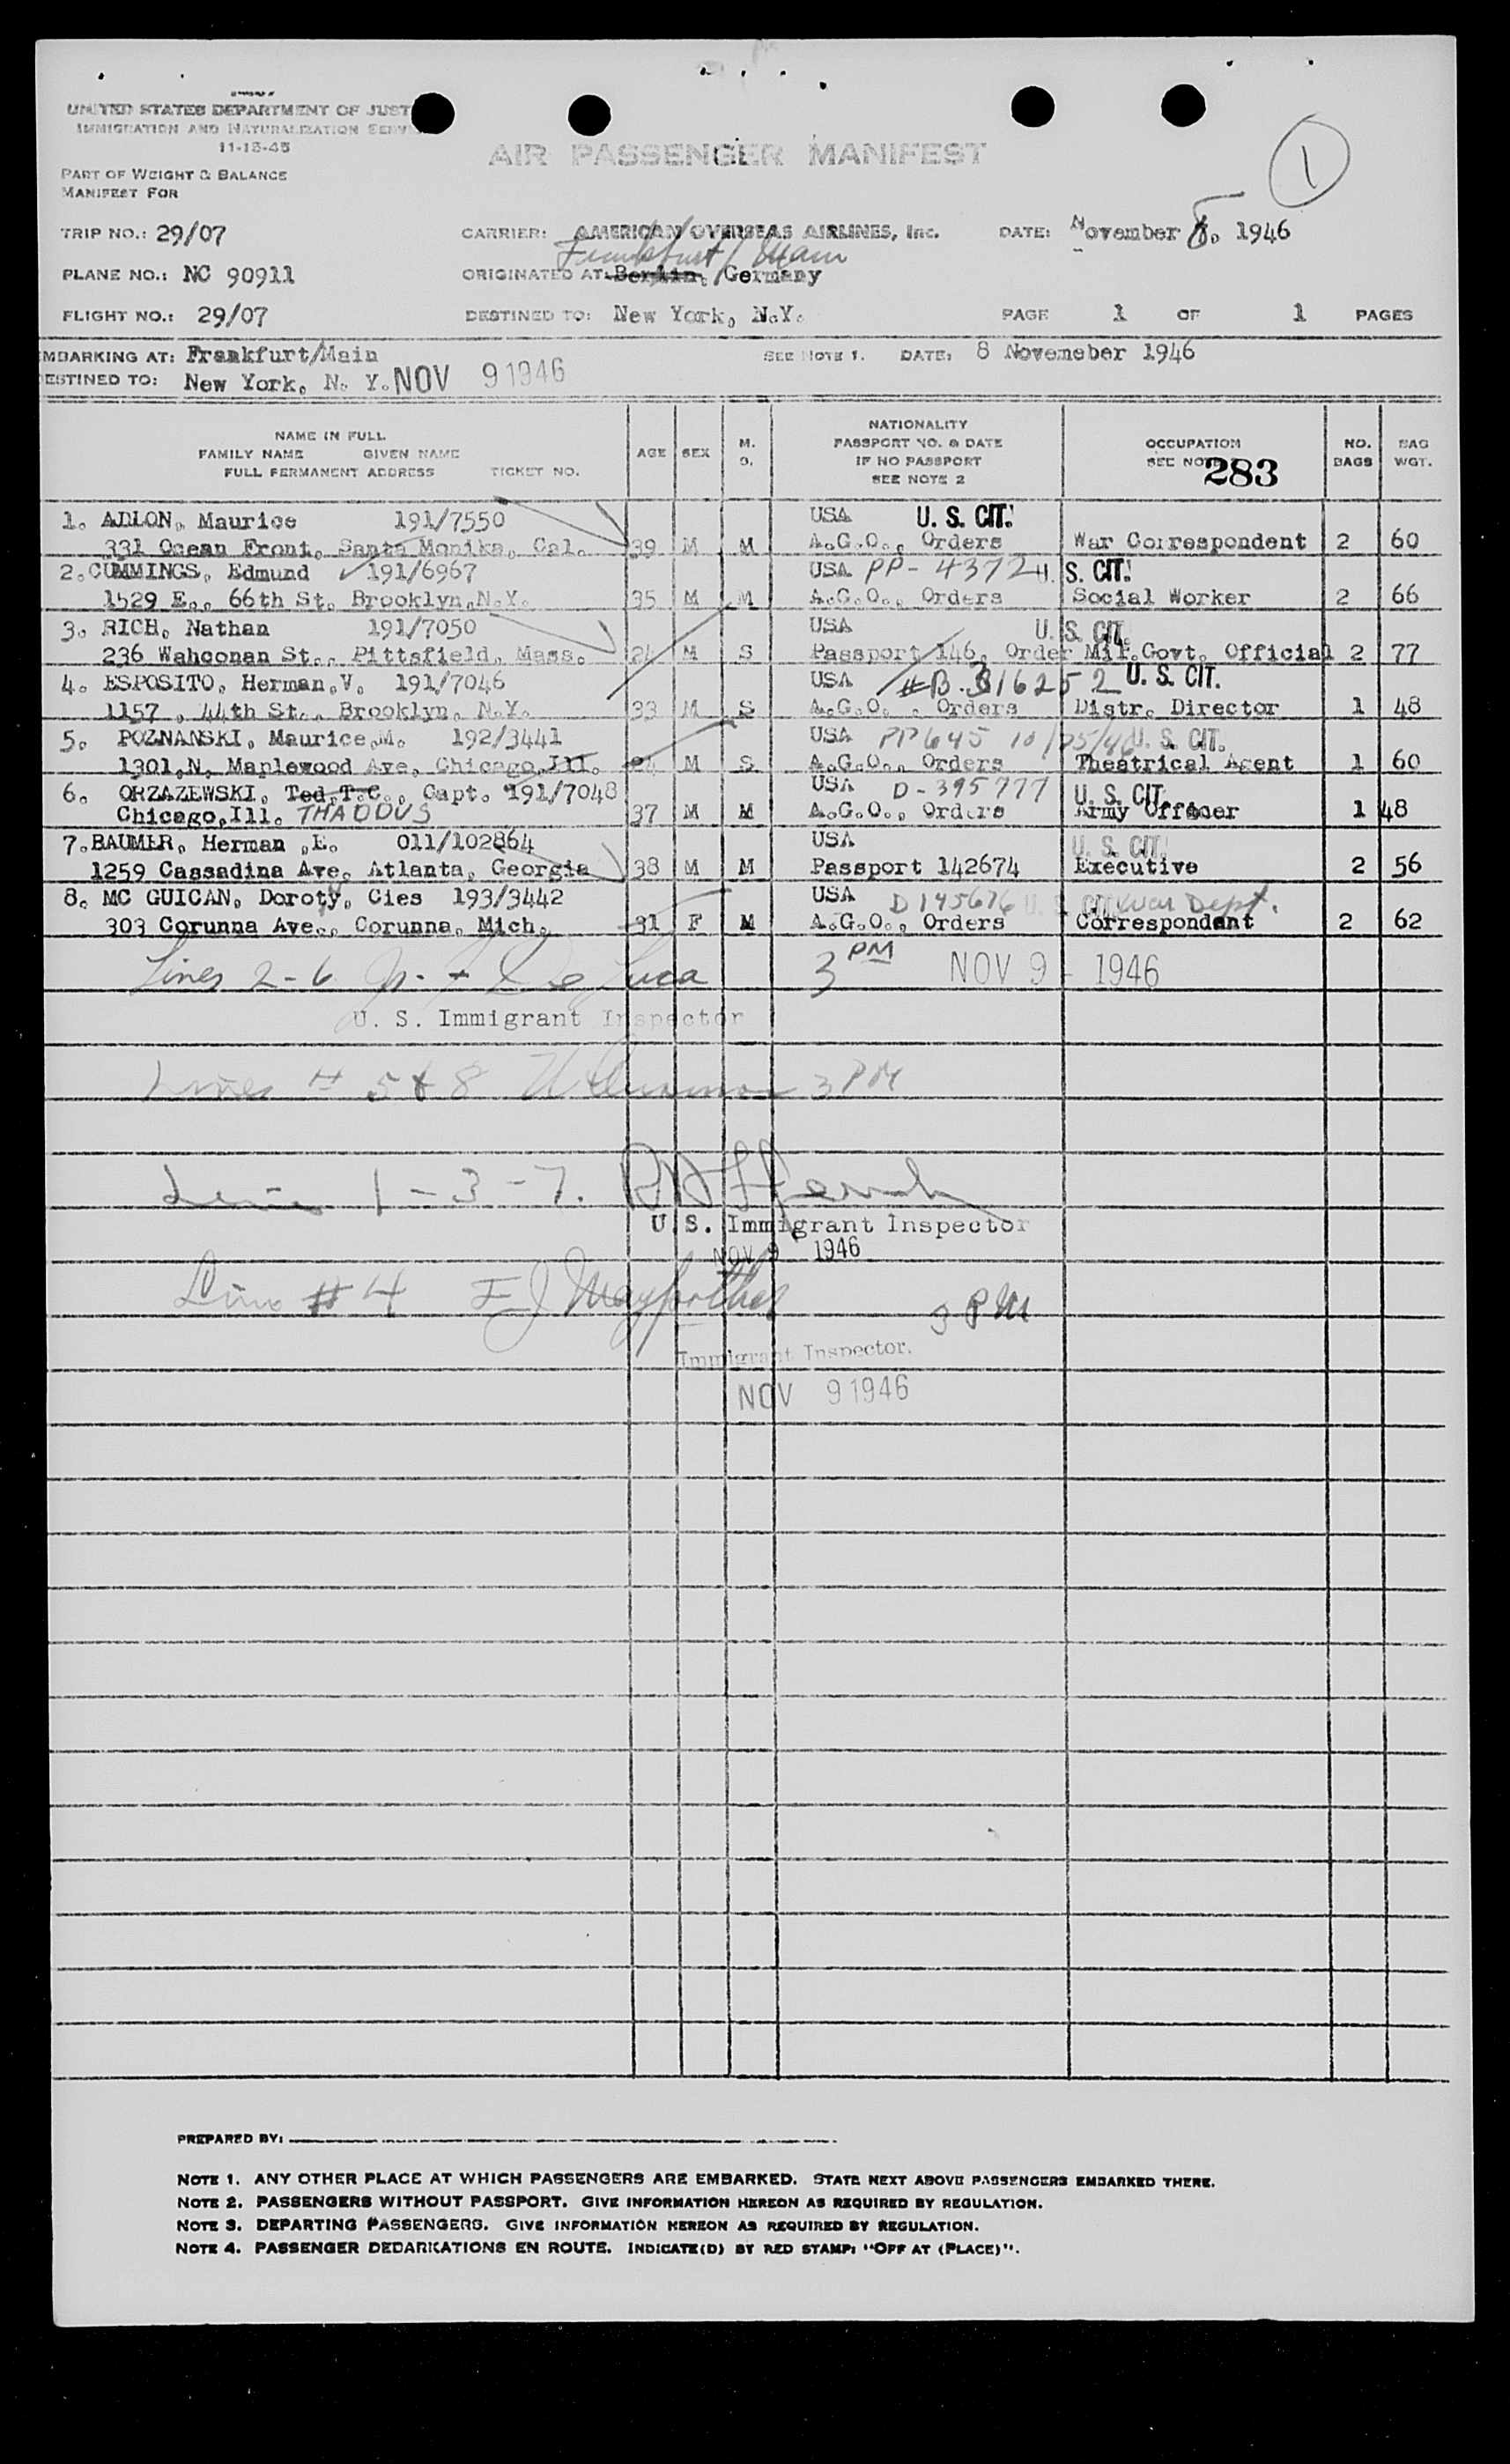 UNITED STATES DEPARTMENT OF JUST
IMMIGRATION AND NATURALIZATION SERVI
11-15-45
AIR PASSENGER MANIFEST
1
PART OF WEIGHT & BALANCE
MANIFEST FOR
TRIP NO.: 29/07 CARRIER: AMERICAN OVERSEAS AIRLINES, Inc. DATE: November 8, 1946
Frankfurt/Main
PLANE NO.: NC 90911 ORIGINATED AT: Berlin, Germany
FLIGHT NO.: 29/07 DESTINED TO: New York, N.Y. PAGE 1 OF 1 PAGES
MBARKING AT: Frankfurt/Main SEE NOTE 1. DATE: 8 Novemeber 1946
ESTINED TO: New York, N. Y. NOV 9 1946
NAME IN FULL
FAMILY NAME GIVEN NAME
FULL PERMANENT ADDRESS TICKET NO.
AGE SEX M. S.
NATIONALITY
PASSPORT NO. & DATE
IF NO PASSPORT
SEE NOTE 2
OCCUPATION
SEE NOTE
283
NO. BAGS
BAG WGT.
1. ADLON, Maurice 191/7550 USA U. S. CIT.
331 Ocean Front, Santa Monika, Cal. 39 M M A.G.O., Orders War Correspondent 2 60
2. CUMMINGS, Edmund 191/6967 USA PP-4372 U. S. CIT.
1529 E., 66th St. Brooklyn, N.Y. 35 M M A.G.O., Orders Social Worker 2 66
3. RICH, Nathan 191/7050 USA U. S. CIT.
236 Wahconan St., Pittsfield, Mass. 24 M S Passport 146, Order Mil.Govt. Official 2 77
4. ESPOSITO, Herman,V. 191/7046 USA #B.316252 U. S. CIT.
1157 , 44th St., Brooklyn, N.Y. 33 M S A.G.O. , Orders Distr. Director 1 48
5. POZNANSKI, Maurice,M. 192/3441 USA PP645 10/25/46 U. S. CIT.
1301,N, Maplewood Ave, Chicago,Ill. 24 M S A.G.O., Orders Theatrical Agent 1 60
6. ORZAZEWSKI, Ted,T.C., Capt. 191/7048 USA D-395777 U. S. CIT.
Chicago,Ill. THADDUS 37 M M A.G.O., Orders Army Officer 1 48
7. BAUMER, Herman ,E. 011/102864 USA U. S. CIT.
1259 Cassadina Ave, Atlanta, Georgia 38 M M Passport 142674 Executive 2 56
8. MC GUICAN, Doroty, Cies 193/3442 USA D145676 U. S. CIT. War Dept.
303 Corunna Ave., Corunna, Mich. 31 F M A.G.O., Orders Correspondent 2 62
Lines 2-6 De Luca 3 PM NOV 9 - 1946
U. S. Immigrant Inspector
Lines # 5 & 8 3 PM
Line 1-3-7.
U. S. Immigrant Inspector
NOV 9 1946
Line #4 3 PM
Immigrant Inspector.
NOV 9 1946
PREPARED BY:
NOTE 1. ANY OTHER PLACE AT WHICH PASSENGERS ARE EMBARKED. STATE NEXT ABOVE PASSENGERS EMBARKED THERE.
NOTE 2. PASSENGERS WITHOUT PASSPORT. GIVE INFORMATION HEREON AS REQUIRED BY REGULATION.
NOTE 3. DEPARTING PASSENGERS. GIVE INFORMATION HEREON AS REQUIRED BY REGULATION.
NOTE 4. PASSENGER DEBARKATIONS EN ROUTE. INDICATE(D) BY RED STAMP: "OFF AT (PLACE)".